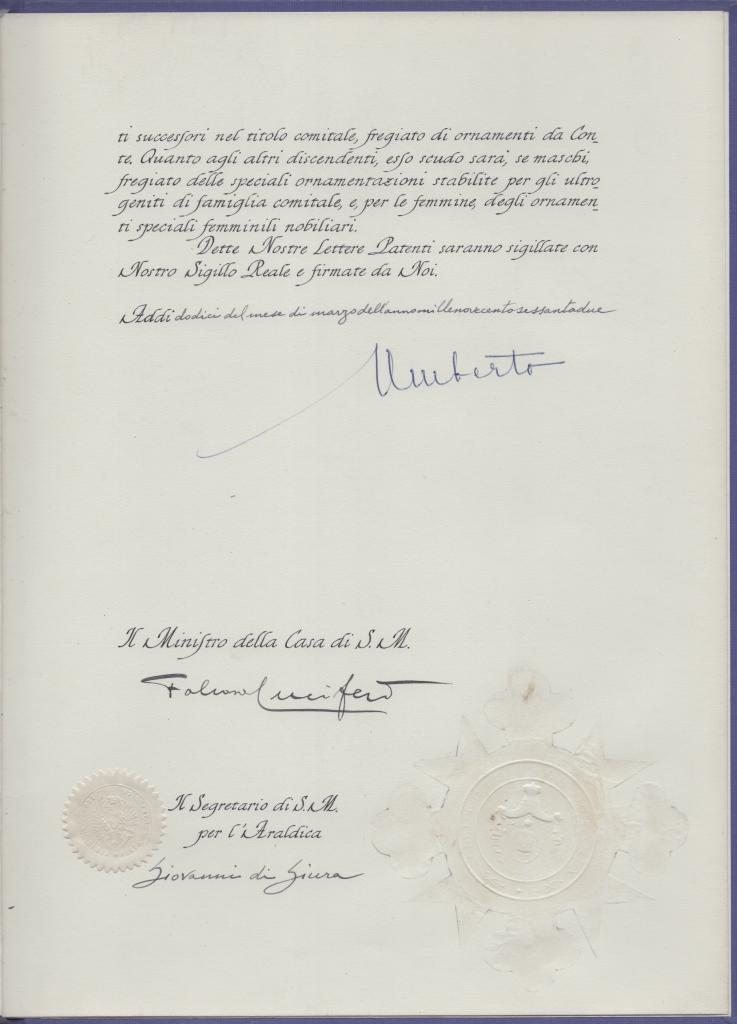 ti successori nel titolo comitale, fregiato di ornamenti da Con-
te. Quanto agli altri discendenti, esso scudo sarà, se maschi,
fregiato delle speciali ornamentazioni stabilite per gli ultro-
geniti di famiglia comitale, e, per le femmine, degli ornamen-
ti speciali femminili nobiliari.
Dette Nostre Lettere Patenti saranno sigillate con
Nostro Sigillo Reale e firmate da Noi.
Addì dodici del mese di marzo dell'anno millenovecentosessantadue
Umberto
Il Ministro della Casa di S. M.
Falcone Lucifero
Il Segretario di S. M.
per l'Araldica
Giovanni di Giura